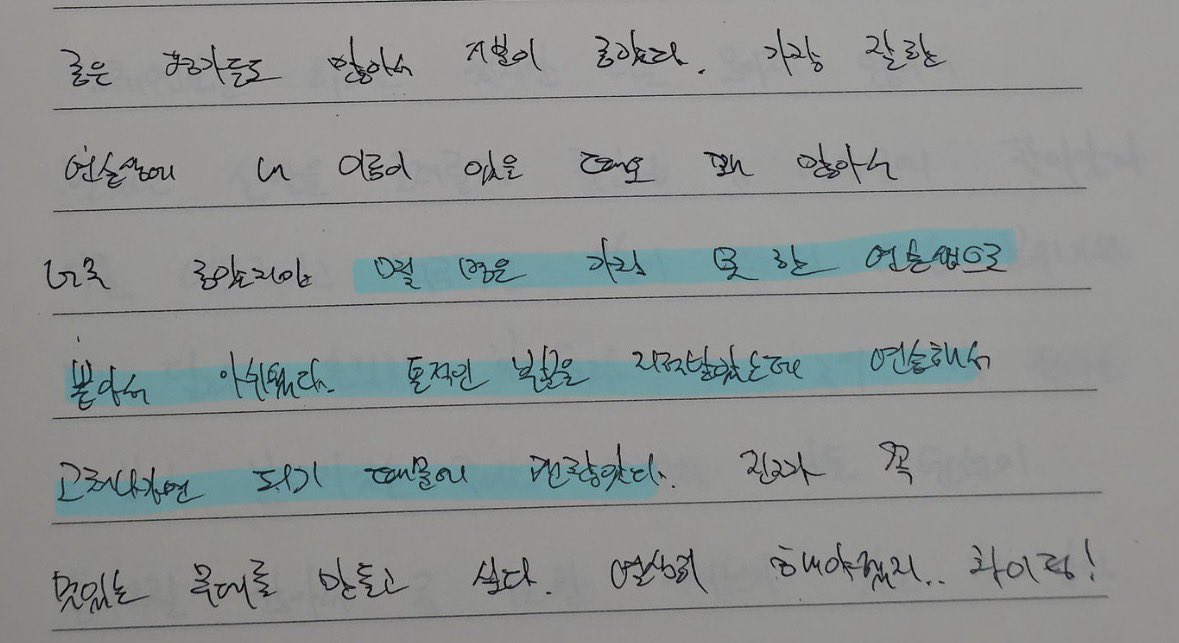 좋은 평가들도 많아서 기분이 좋았다. 가장 잘한
연습생에 내 이름이 있을 때도 꽤 많아서
너무 좋았지만 몇 명은 가장 못 한 연습생으로
뽑아서 아쉬웠다. 톤적인 부분을 지적받았는데 연습해서
고쳐나가면 되기 때문에 괜찮았다. 진짜 꼭
멋있는 무대를 만들고 싶다. 열심히 해야겠지.. 화이팅!